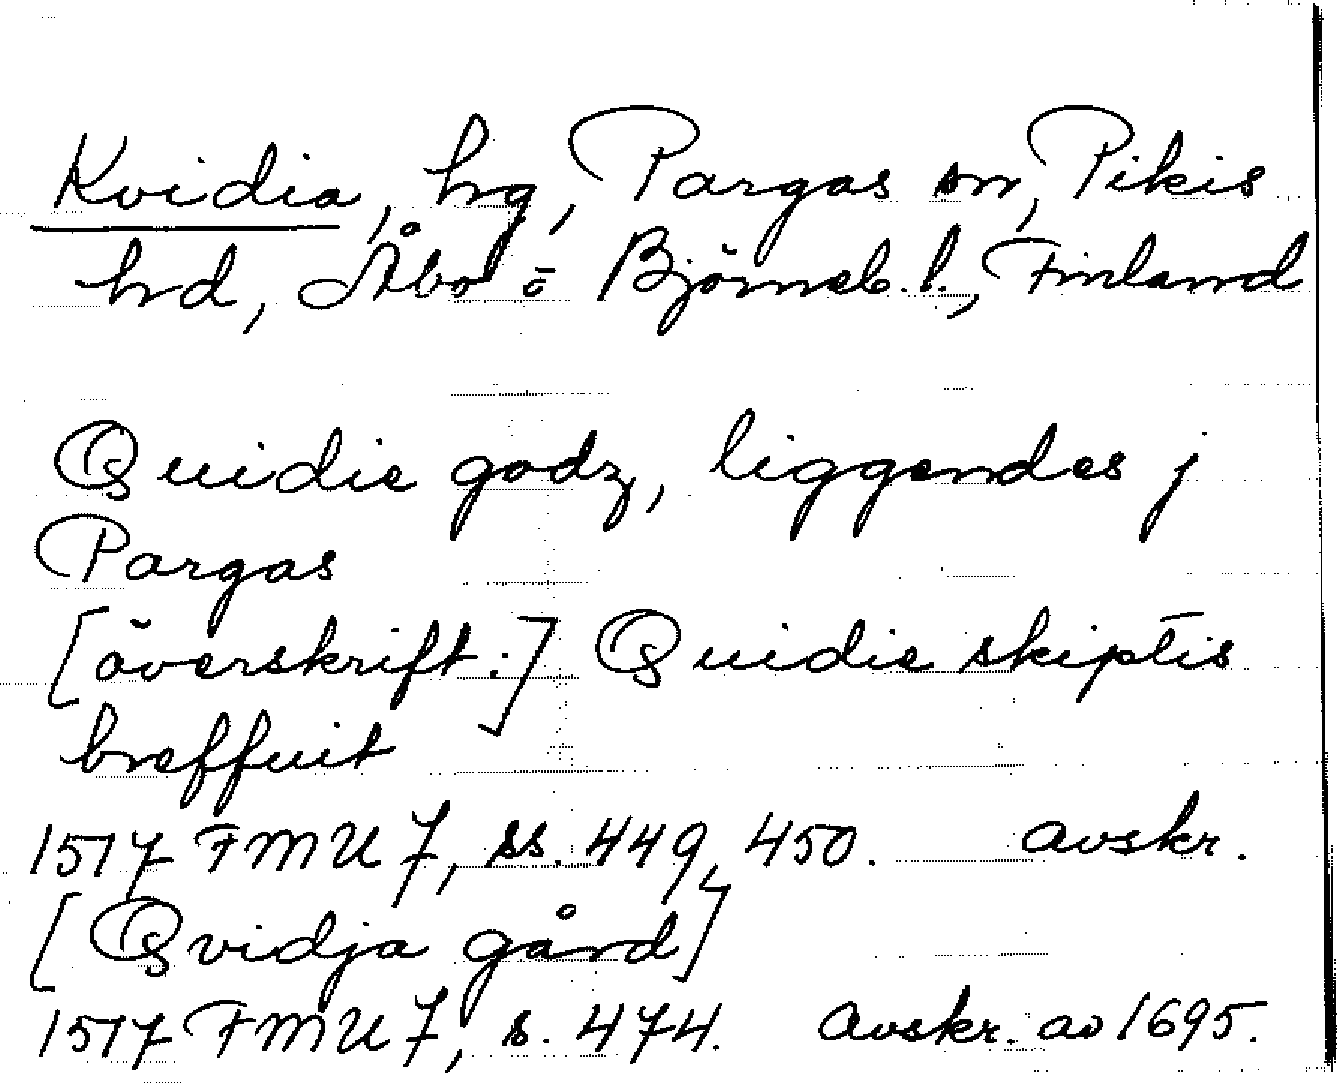 Kvidia, hrg, Pargas sn, Pikis
hrd, Åbo o Björneb. l., Finland
Quidie godz, liggendes j
Pargas
[överskrift:] Quidie skiptis
breffuit
1517 FMU 7, ss. 449, 450. avskr.
[Qvidja gård]
1517 FMU 7, s. 474. Avskr. av 1695.